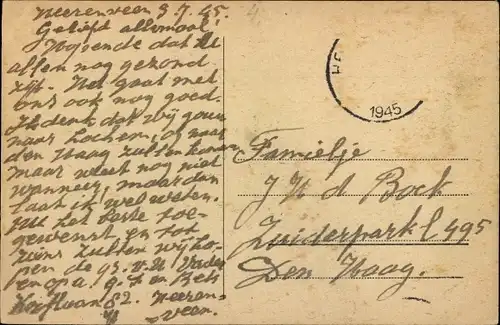 Heerenveen 3 7. 45.
Geliefd allemaal!
Hopende dat U
allen nog gezond
zijt. Het gaat met
ons ook nog goed.
Ik denk dat wij gouw
naar Lochem, of naar
den Haag zullen komen
maar weet nog niet
wanneer, maar dan
laat ik wel weten.
Nu het beste toe-
gewenst en tot
ziens zullen wij ho-
pen de
en opa, en Bets
82. Heeren-
veen.
1945
Familje
J H d Boet
Zuiderpark 495
Den Haag.